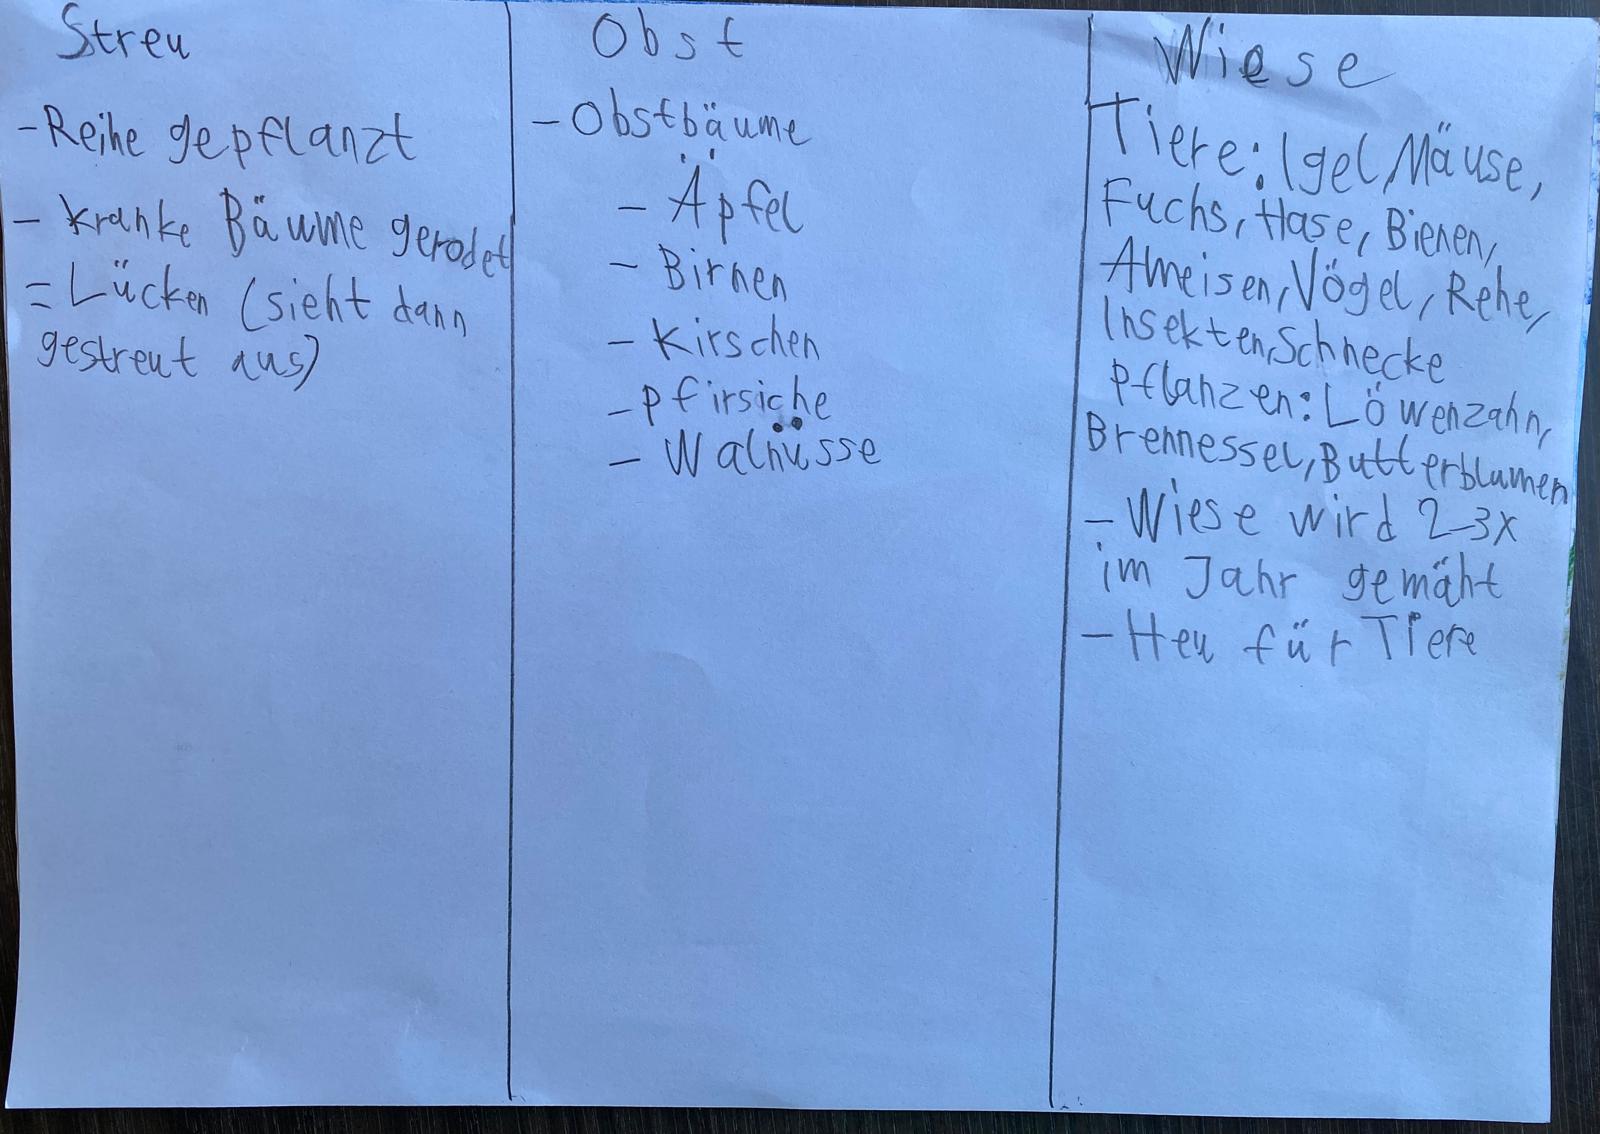 Streu
- Reihe gepflanzt
- kranke Bäume gerodet
= Lücken (sieht dann
gestreut aus)
Obst
- Obstbäume
- Äpfel
- Birnen
- Kirschen
- Pfirsiche
- Walnüsse
Wiese
Tiere: Igel, Mäuse,
Fuchs, Hase, Bienen,
Ameisen, Vögel, Rehe,
Insekten, Schnecke
Pflanzen: Löwenzahn,
Brennessel, Butterblumen
- Wiese wird 2-3x
im Jahr gemäht
- Heu für Tiere